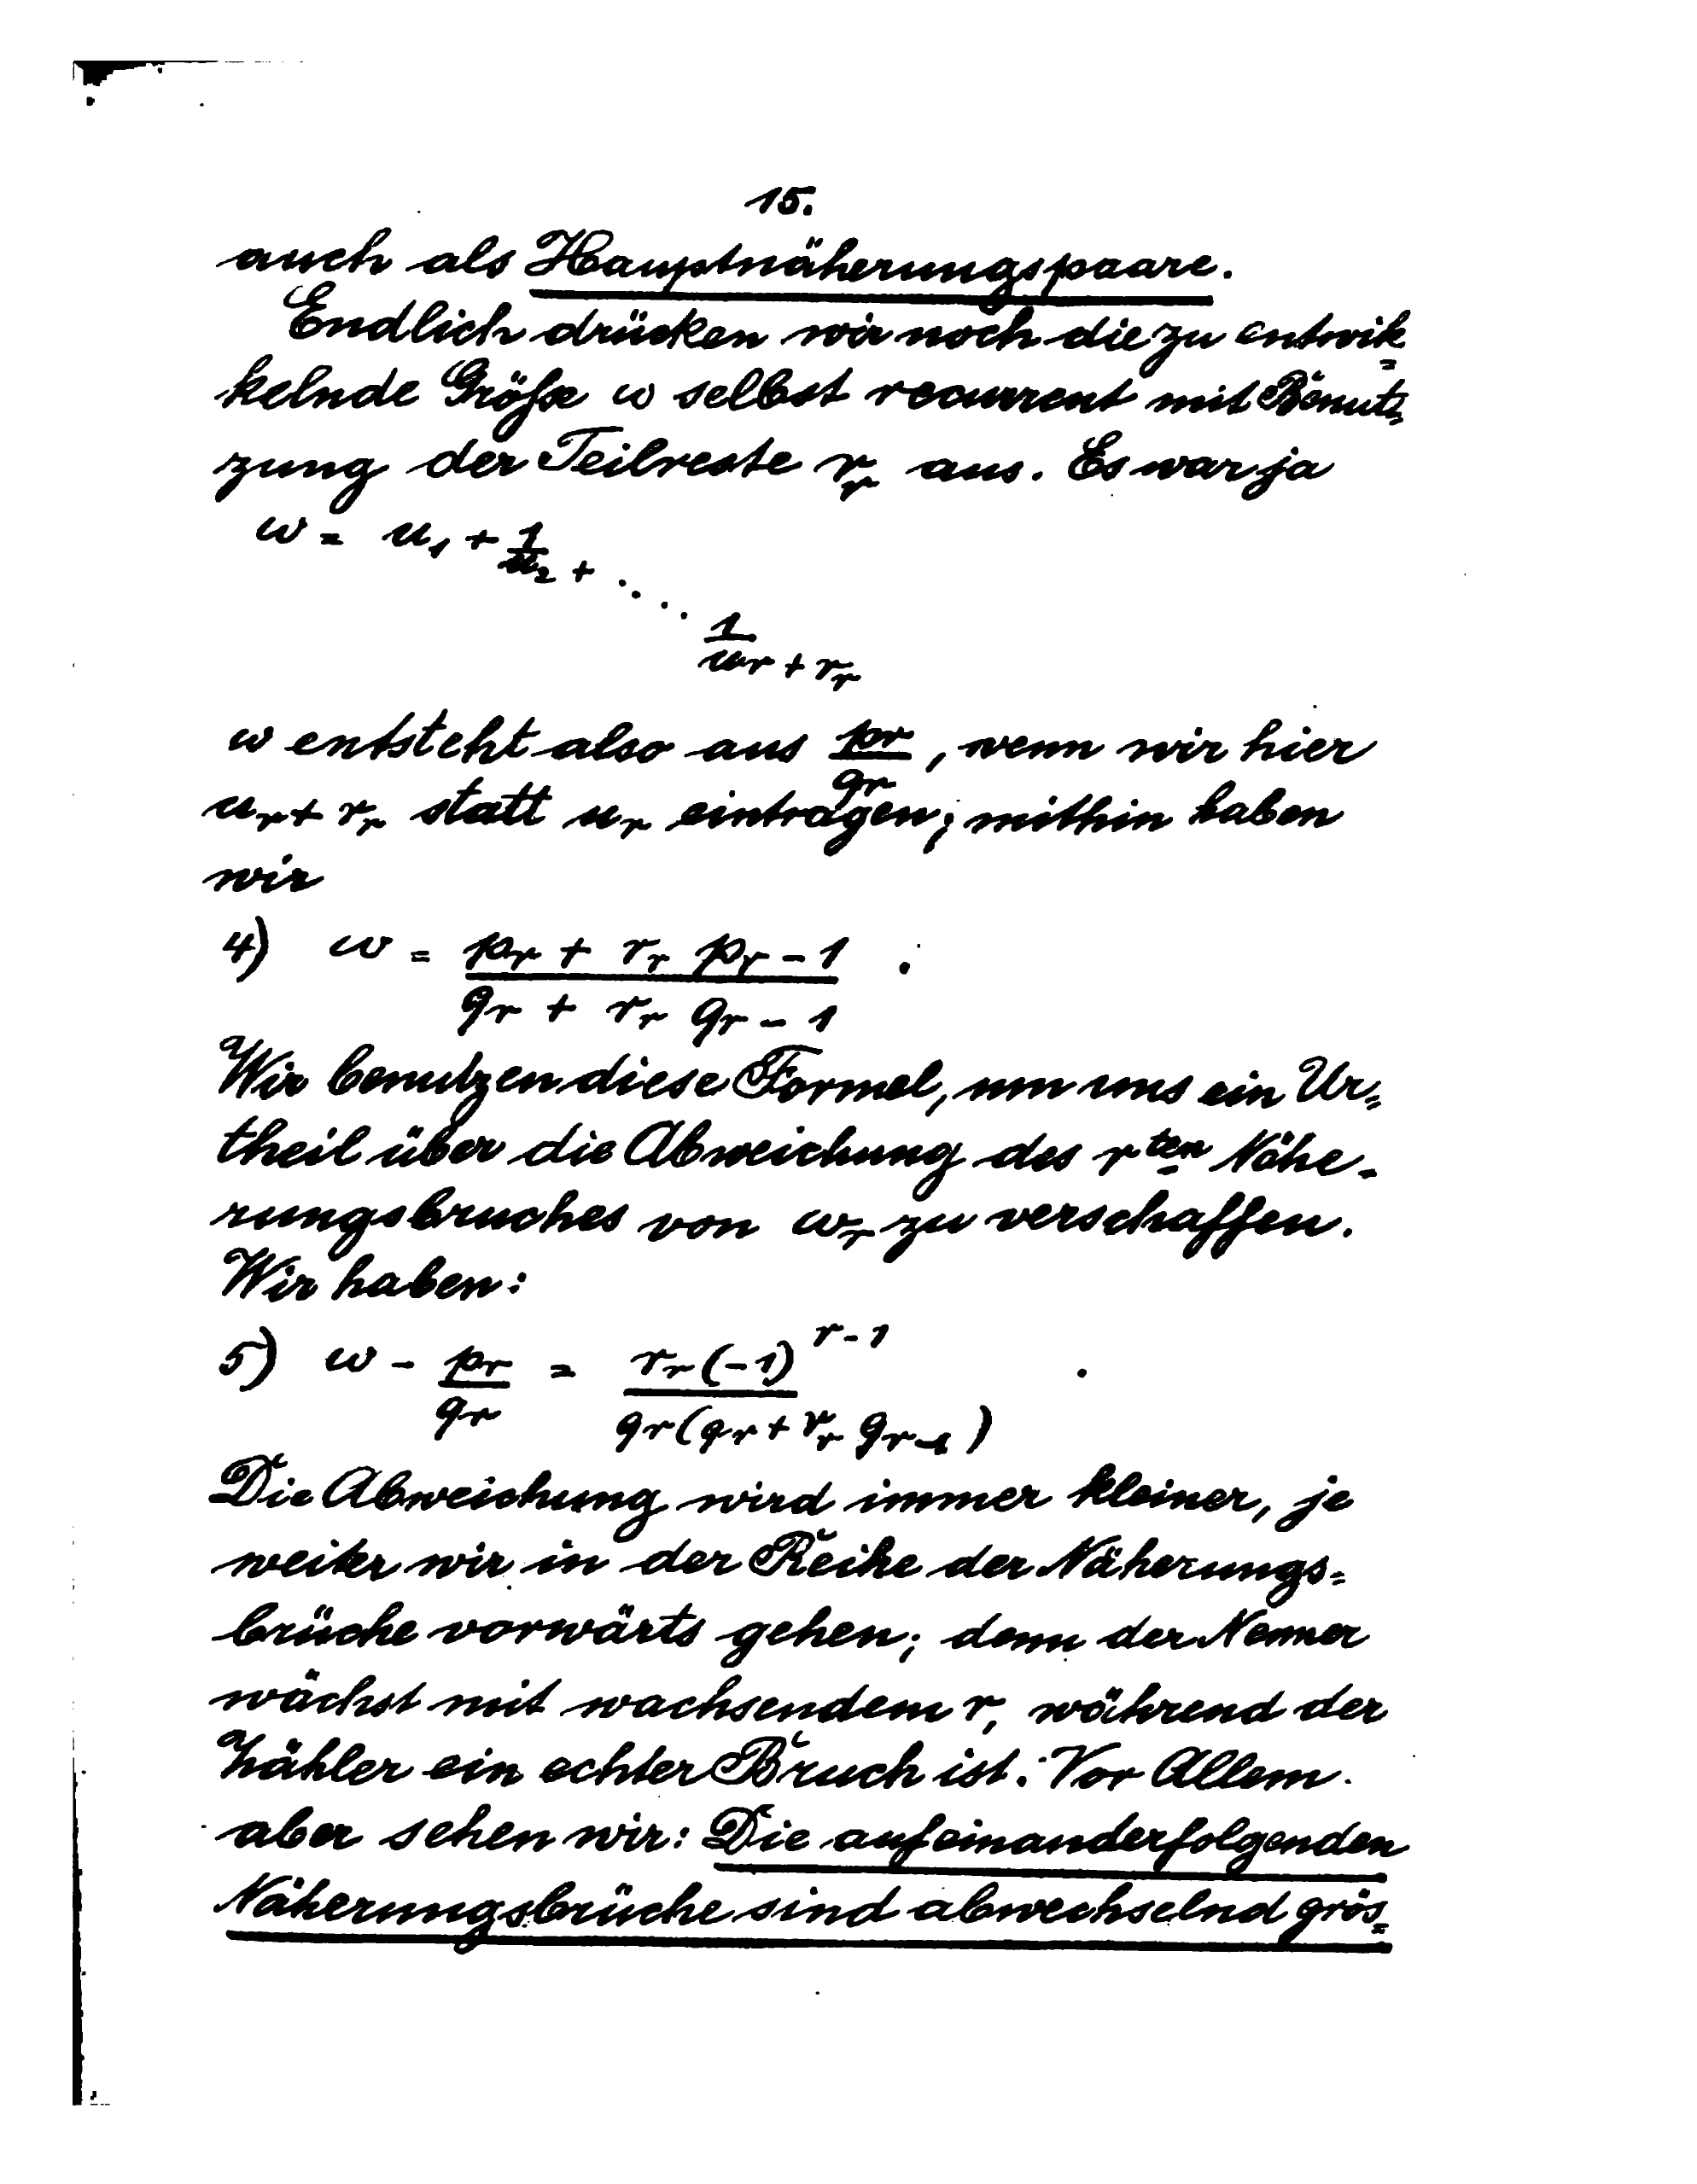 15.
auch als Hauptnäherungspaare.
Endlich drücken wir noch die zu entwik=
kelnde Größe ω selbst recurrent mit Benut=
zung der Teilreste r_r aus. Es war ja
ω = u_1 + 1/u_2 + . . . .
1/u_r + r_r
ω entsteht also aus p_r/q_r, wenn wir hier
u_r + r_r statt u_r eintragen; mithin haben
wir
4) ω = (p_r + r_r p_r-1)/(q_r + r_r q_r-1) .
Wir benutzen diese Formel, um uns ein Ur=
theil über die Abweichung des r^ten Nähe-
rungsbruches von ω_r zu verschaffen.
Wir haben:
5) ω - p_r/q_r = r_r (-1)^r-1 / q_r (q_r + r_r q_r-1) .
Die Abweichung wird immer kleiner, je
weiter wir in der Reihe der Näherungs=
brüche vorwärts gehen; denn der Nenner
wächst mit wachsendem r, während der
Zähler ein echter Bruch ist. Vor Allem
aber sehen wir: Die aufeinanderfolgenden
Näherungsbrüche sind abwechselnd grös=